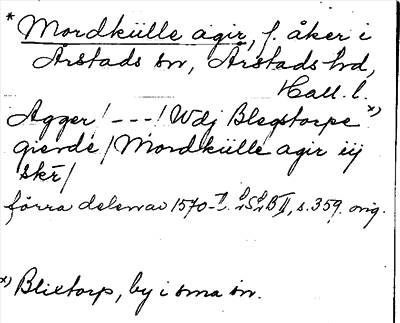 * Mordkülle agir, f. åker i
Årstads sn, Årstads hd,
Hall. l.
Agger / - - - / Wdj Blegstorpe x)
gierde / Mordkülle agir iij
skr̄ /
förra delen av 1570-t. s. 359. orig.
x) Blixtorp, by i sma sn.